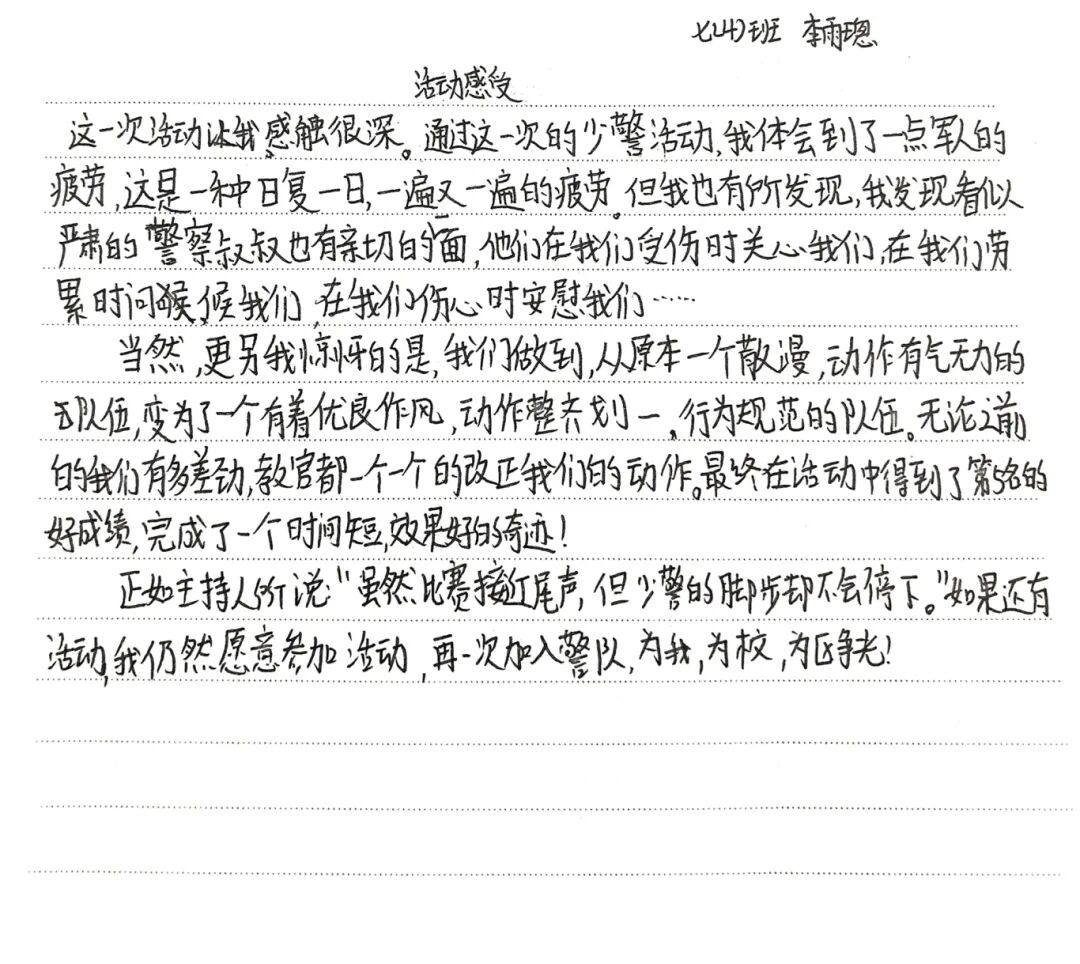 七(4)班 李雨璁
活动感受
这一次活动让我感触很深。通过这一次的少警活动,我体会到了一点军人的
疲劳,这是一种日复一日,一遍又一遍的疲劳。但我也有所发现,我发现看似
严肃的警察叔叔也有亲切的一面,他们在我们受伤时关心我们,在我们劳
累时问候,候我们,在我们伤心时安慰我们……
当然,更另我惊讶的是,我们做到,从原本一个散漫,动作有气无力的
队伍,变为了一个有着优良作风,动作整齐划一,行为规范的队伍。无论之前
的我们有多差劲,教官都一个一个的改正我们的动作。最终在活动中得到了第5名的
好成绩,完成了一个时间短,效果好的奇迹!
正如主持人所说"虽然比赛接近尾声,但少警的脚步却不会停下。"如果还有
活动,我仍然愿意参加活动,再一次加入警队,为我,为校,为区争光!